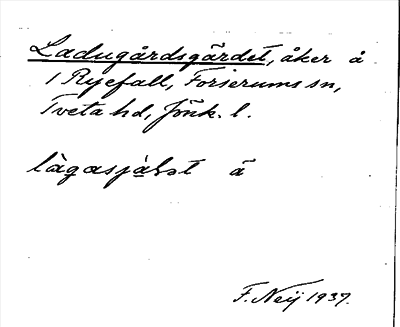 Ladugårdsgärdet, åker å
1 Ryefall, Forserums sn,
Tveta hd, Jönk. l.
å
F. Neij 1937.